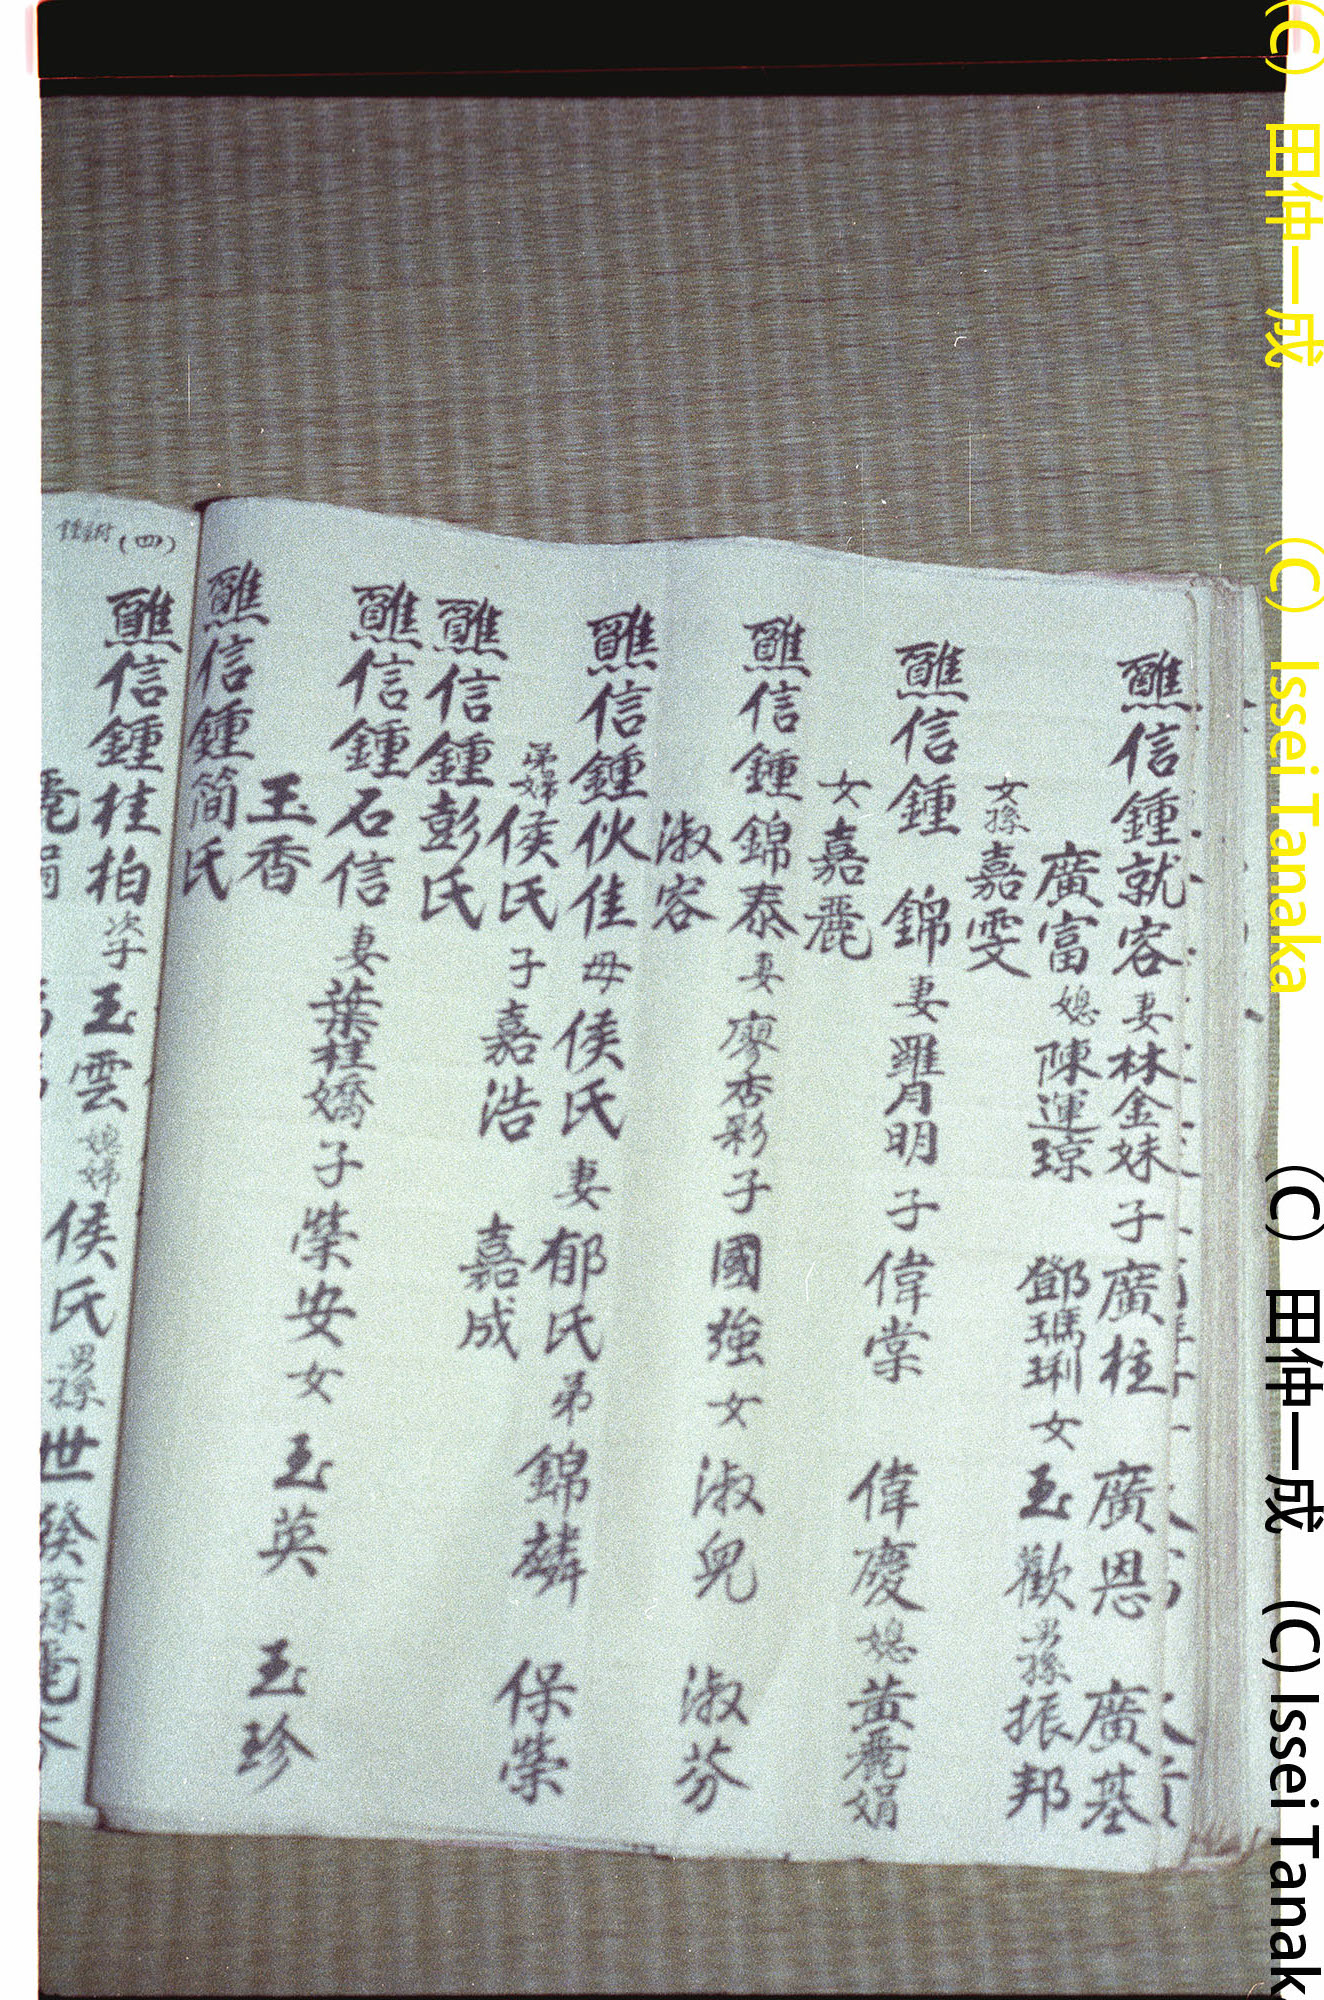 醮信鍾就容妻林金妹子廣柱 廣恩 廣基
廣富媳陳運琼 鄧瑪琍女玉歡男孫振邦
女孫嘉雯
醮信鍾 錦妻羅月明子偉棠 偉慶媳黃麗娟
女嘉麗
醮信鍾錦泰妻廖杏彩子國強女淑兒 淑芬
淑容
醮信鍾伙佳母侯氏妻郁氏弟錦麟 保榮
弟婦侯氏子嘉浩 嘉成
醮信鍾彭氏
醮信鍾石信妻葉桂嬌子榮安女玉英 玉珍
玉香
醮信鍾簡氏
(四)
醮信鍾桂柏次子玉雲媳婦侯氏男孫世癸女孫
(C) 田仲一成 (C) Issei Tanaka (C) 田仲一成 (C) Issei Tanak